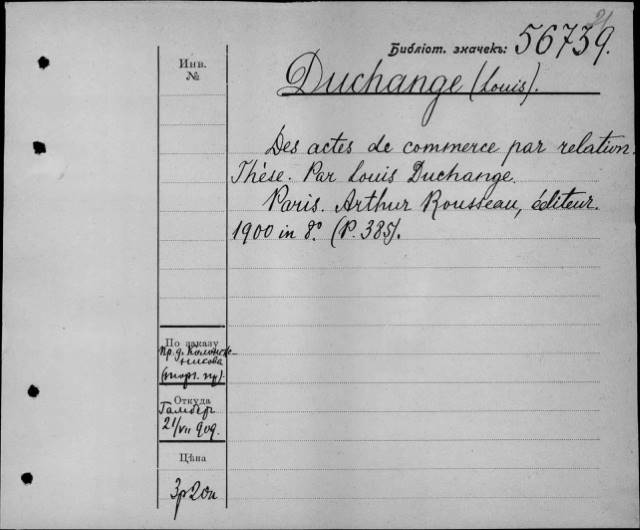 21
Библіот. значекъ: 56739.
Инв.
№
Duchange (Louis).
Des actes de commerce par relation.
Thèse. Par Louis Duchange.
Paris. Arthur Rousseau, éditeur.
1900 in 8.° (P. 385).
По заказу
Пр. д.
(торг. пр).
Откуда
Гамбер
21/VII 909.
Цѣна
3р 20к